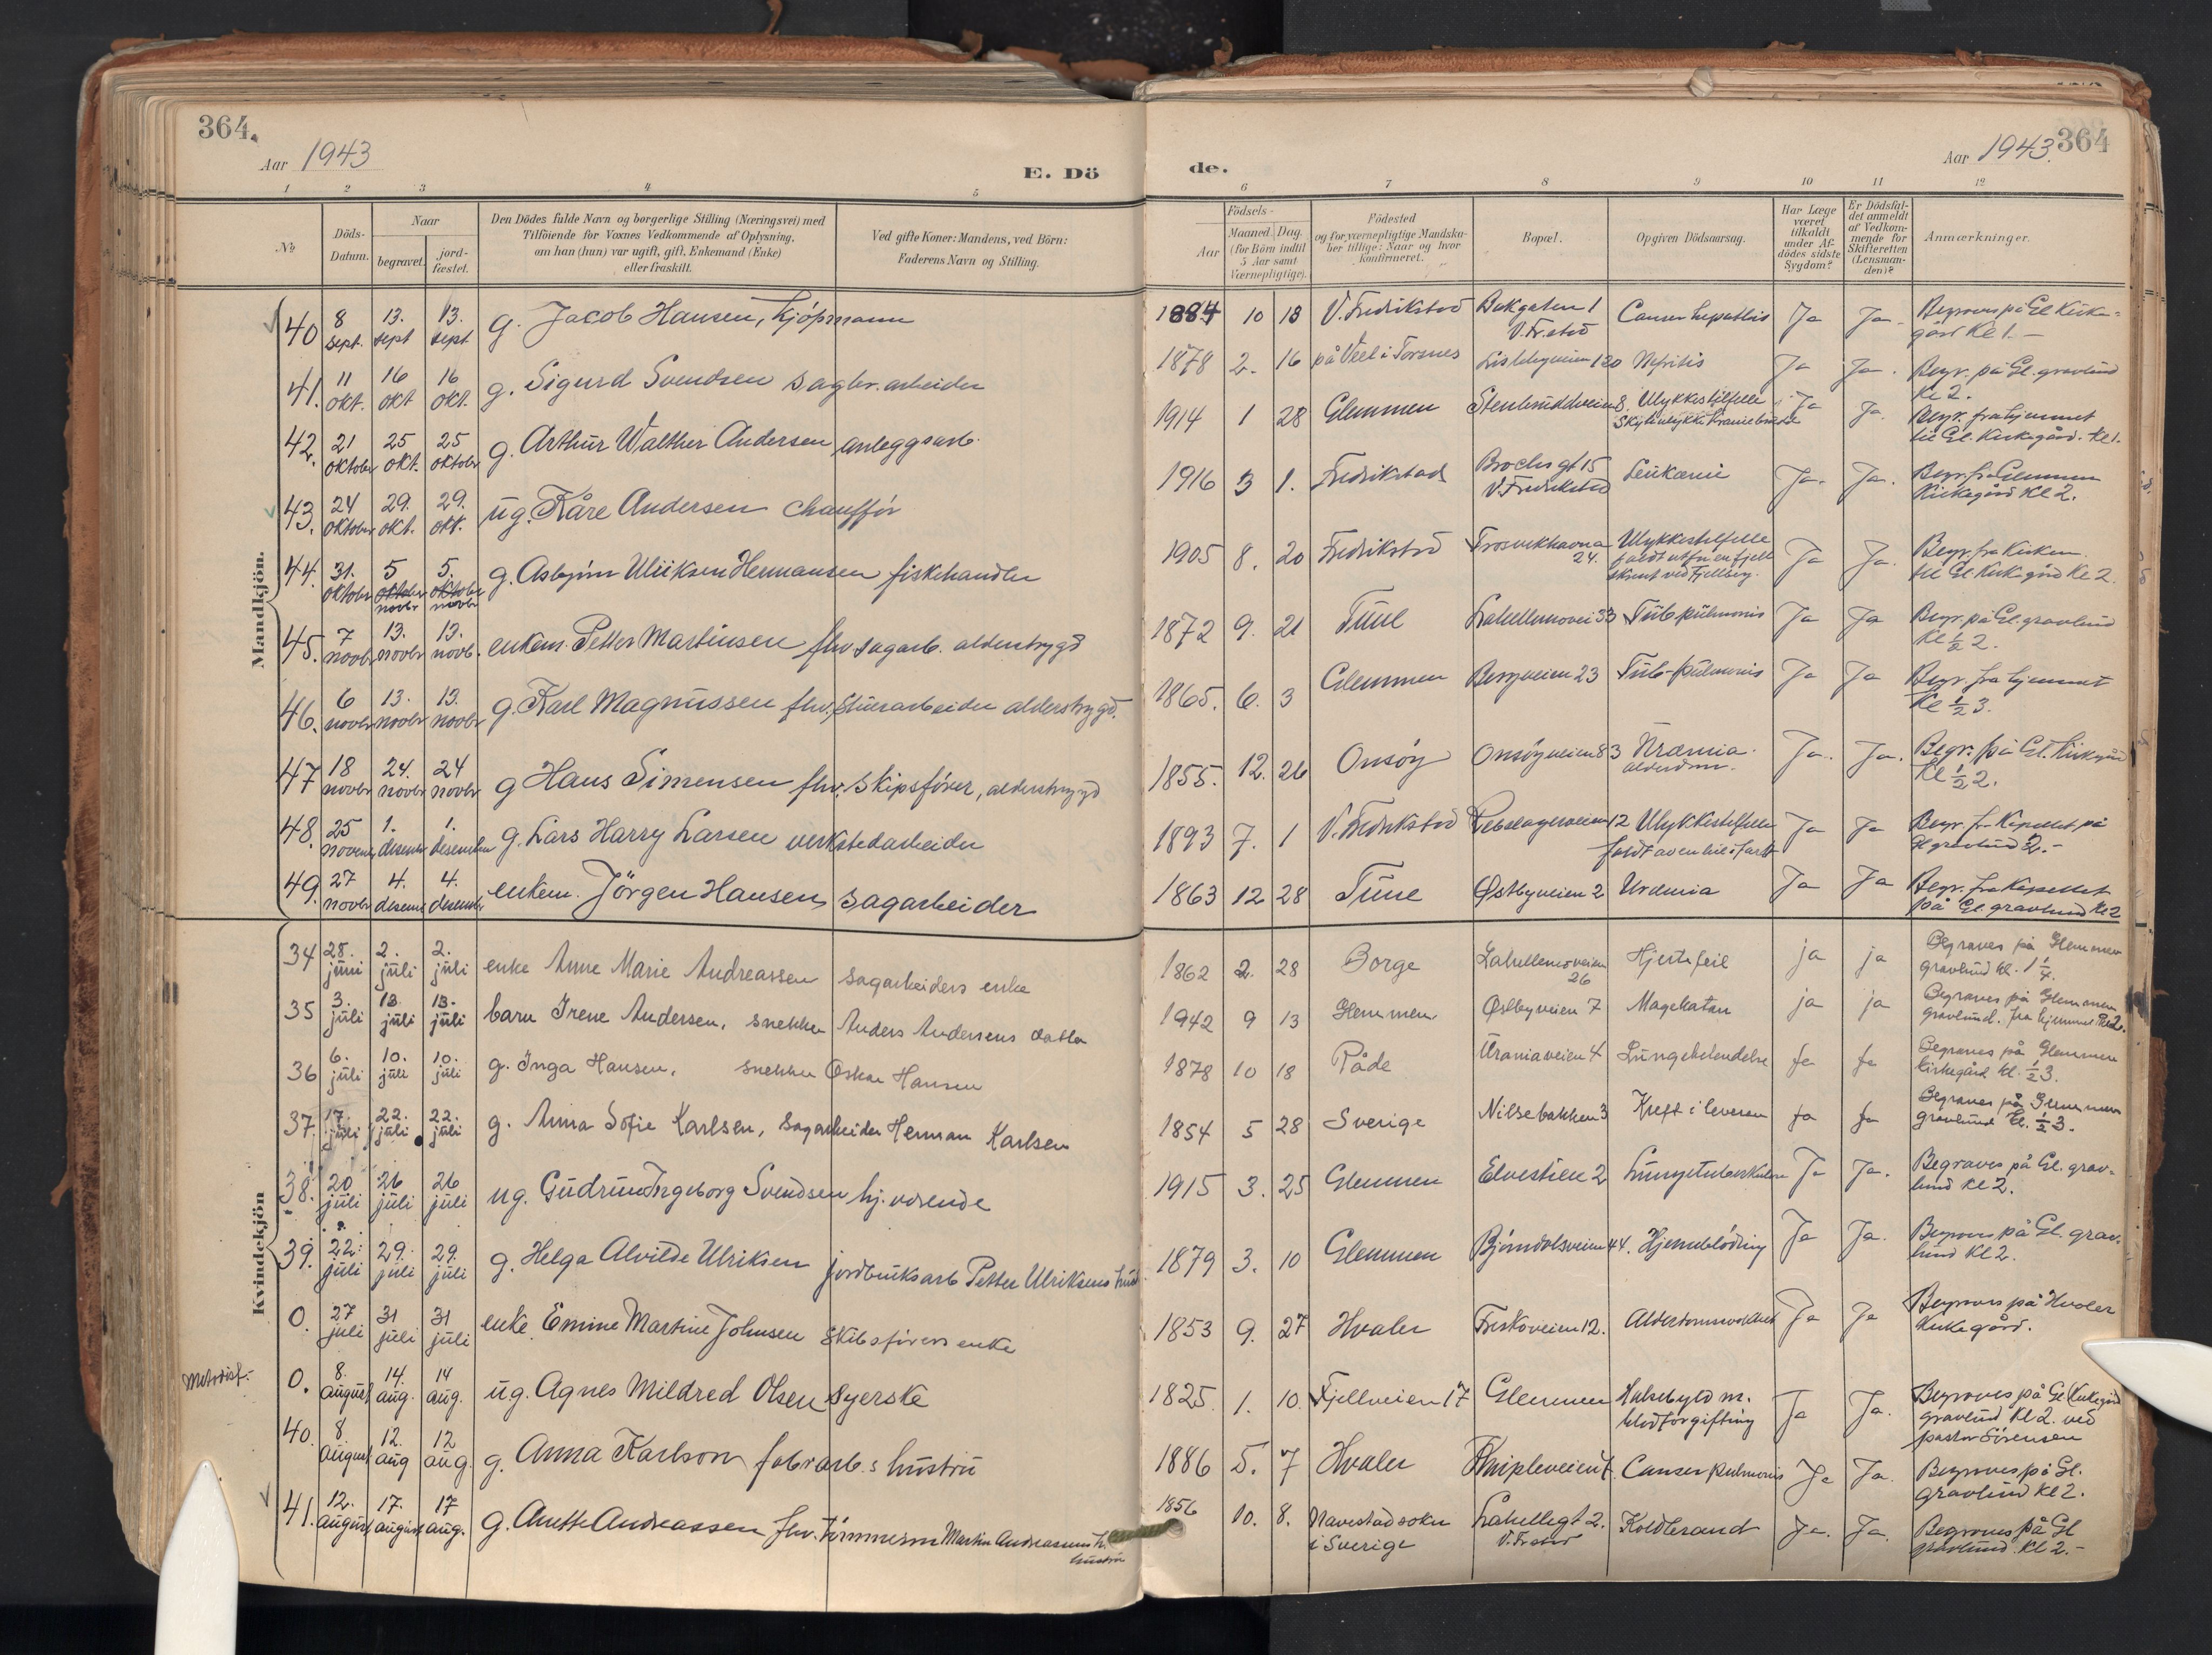 364.
Aar 1943
E. Dö
1 2 3 4 5
№
Döds-
Datum.
Naar
begravet.
jord-
fæstet.
Den Dödes fulde Navn og borgerlige Stilling (Næringsvei) med
Tilföiende for Voxnes Vedkommende af Oplysning,
om han (hun) var ugift, gift, Enkemand (Enke)
eller fraskilt.
Ved gifte Koner: Mandens, ved Börn:
Faderens Navn og Stilling.
Mandkjön.
40 8 sept. 13. sept 13. sept g. Jacob Hansen, kjöpmann
41. 11 okt. 16 okt 16 okt. g. Sigurd Svendsen sagbr. arbeider
42. 21 oktober 25 okt. 25 oktober g. Arthur Walther Andersen anleggsarb.
43. 24 oktober 29. okt. 29. okt. ug. Kåre Andersen chaufför
44. 31. oktober 5 oktober novbr 5. oktober novbr g. Asbjörn Ulriksen Hermansen fiskehandler
45. 7 novbr 13. novbr 13. novb. enkem. Petter Martinsen fhv sagarb. alderstrygd
46. 6 novbr 13. novbr 13. novbr g. Karl Magnussen fhv. alderstrygd.
47 18 novbr 24. novbr 24 novbr g Hans Simensen fhv. skipsförer, alderstrygd
48. 25 novem 1. desember 1. desember g. Lars Harry Larsen verkstedarbeider
49. 27 novbr 4. desemb 4. desember enkem. Jörgen Hansen sagarbeider
Kvindekjön
34 28. juni 2. juli 2. juli enke Anne Marie Andreassen sagarbeiders enke
35 3. juli 13. juli 13. juli barn Irene Andersen, snekker Anders Andersens datter
36 6. juli 10. juli 10. juli g. Inga Hansen, snekker Oskar Hansen
37. 17. juli 22. juli 22. juli g. Anna Sofie Karlsen, sagarbeider Herman Karlsen
38. 20 juli 26 juli 26 juli ug. Gudrun Ingeborg Svendsen hj. værende
39. 22. juli 29. juli 29. juli g. Helga Alvilde Ulriksen jordbruksarb Petter Ulriksens hust
0. 27 juli 31 juli 31 juli enke Emine Martine Johnsen skibsförers enke
Metodist.
0. 8. august 14. aug. 14 aug. ug. Agnes Mildred Olsen syerske
40. 8. august 12. aug 12 aug. g. Anna Karlson fabr arb.s hustru
41. 12. august 17. august 17 aug. g. Anette Andreassen fhv. tömmerm Martin Andreassens
hustru
de.
Aar 1943. 364
6 7 8 9 10 11 12
Födsels-
Aar
Maaned. Dag.
(for Börn indtil
5 Aar samt
Værnepligtige).
Födested
og for værnepligtige Mandska-
ber tillige: Naar og hvor
konfirmeret.
Bopæl.
Opgiven Dödsaarsag.
Har Læge
været
tilkaldt
under Af-
dödes sidste
Sygdom?
Er Dödsfal-
det anmeldt
af Vedkom-
mende for
Skifteretten
(Lensman-
den)?
Anmærkninger.
1884 10 18 V. Fredrikstad Bakgaten 1 V. Fr.stad Cancer hepatis Ja Ja. Begraves på Gl Kirke-
gård Kl 1.-
1878 2. 16 på Veel i Torsnes Lislebyveien 120 Nefritis Ja Ja. Begr. på Gl. gravlund
Kl 2.
1914 1 28 Glemmen Ulykkestilfelle Ja Ja. Begr. fra hjemmet
til Gl. Kirkegård. Kl 1.
1916 3 1. Fredrikstad Brochsgt 15 V. Fredrikstad Leukæmi Ja. Ja. Begr. fra Glemmen
Kirkegård Kl 2.
1905 8. 20 Fredrikstad Trosvikhavna 24. Ulykkestilfelle
faldt utfor en fjell
skrent ved Fjellberg. Ja Ja. Begr. fra Kirken
til Gl. Kirkegård Kl 2.
1872 9. 21 Tune Lahellemovei 33 Tub. pulmonis Ja Ja Begr. på Gl. gravlund
Kl ½ 2.
1865. 6. 3 Glemmen Bergveien 23 Tub-pulmonis Ja Ja Begr. fra hjemmet
Kl ½ 3.
1855. 12. 26 Onsöy Onsöyveien 83 Uræmia.
alderdom. Ja. Ja. Begr. på Gl. Kirkegård
Kl ½ 2.
1893 7. 1 V. Fredrikstad Rebslagerveien 12 Ulykkestilfelle
faldt av en bil i fart Ja Ja Begr. fr. Kapellet på
Gl gravlund 2.-
1863 12 28 Tune Østbyveien 2 Uremia Ja Ja Begr. fra Kapellet
på Gl. gravlund Kl 2
1862 2. 28 Borge Lahellemoveien 26 Hjertefeil ja ja Begraves på Glemmen
gravlund kl. 1 ¼.
1942 9 13 Glemmen Østbyveien 7 Magekatarr ja ja Begraves på Glemmen
gravlund. fra hjemmet Kl 2.
1878 10 18 Råde Uraniaveien 4 Lungebetendelse Ja Ja Begraves på Glemmen
kirkegård kl. ½ 3.
1854 5 28 Sverige Nilsebakken 3 Kreft i leveren Ja Ja Begraves på Glemmen
gravlund kl. ½ 3.
1915 3. 25 Glemmen Elvestien 2 Lungetuberkulose Ja Ja. Begraves på Gl. grav-
lund Kl 2.
1879 3. 10 Glemmen Bjørndalsveien 44. Hjerneblödning Ja Ja. Begraves på Gl. grav-
lund Kl 2.
1853 9. 27 Hvaler Freskoveien 12. Alderdomssvakhet Ja Ja Begraves på Hvaler
Kirkegård.
1825. 1. 10. Fjellveien 17 Glemmen Halsebyld m.
blodforgiftning Ja Ja. Begraves på Gl Kirkegård
gravlund Kl 2. ved
pastor Sörensen
1886 5. 7 Hvaler Knipleveien Cancer pulmonis Ja Ja. Begraves på Gl.
gravlund Kl 2.
1856 10. 8. Navestad sokn
i Sverige Lahellegt 2.
V. Frstad Koldbrand Ja. Ja. Begraves på Gl
gravlund. Kl 2.-